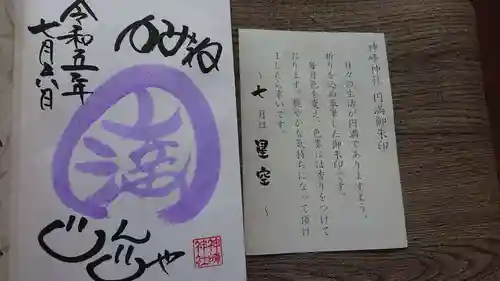 令和五年
七月六日
かみね
じんじゃ
神峰
神社
神峰神社 円満御朱印
日々の生活が円満でありますよう。
祈りを込め奉筆した御朱印です。
毎月色を変え、色墨には香りをつけて
おります。爽やかな気持ちになって頂け
ましたら幸いです。
〜 七 月は 星空 〜